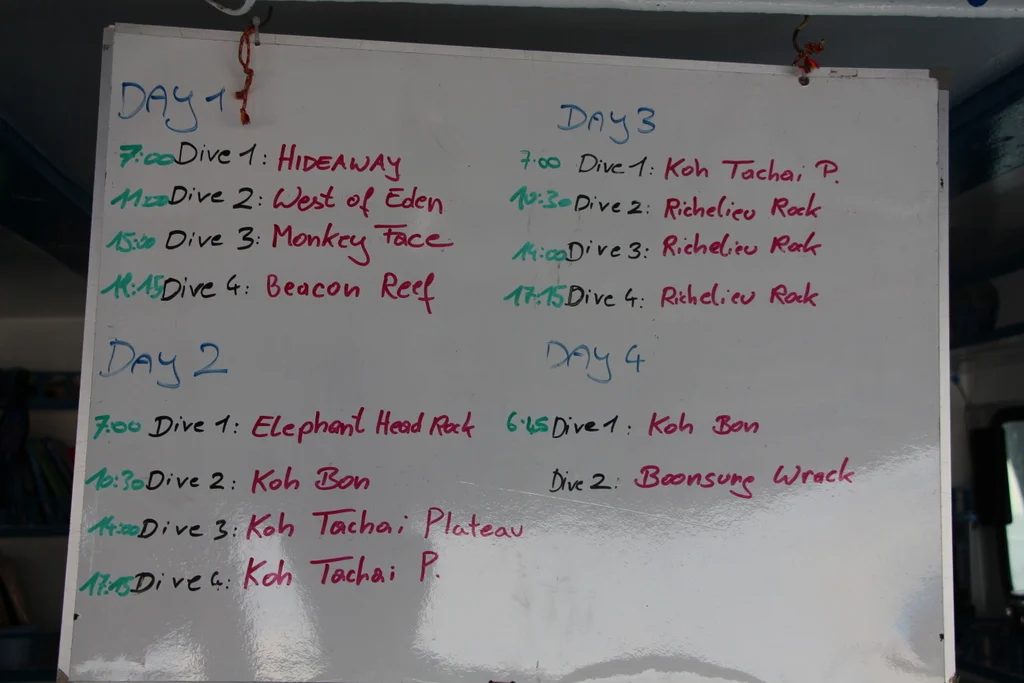 DAY 1
7:00 Dive 1: HIDEAWAY
11:00 Dive 2: West of Eden
15:00 Dive 3: Monkey Face
18:15 Dive 4: Beacon Reef
DAY 2
7:00 Dive 1: Elephant Head Rock
10:30 Dive 2: Koh Bon
14:00 Dive 3: Koh Tachai Plateau
17:15 Dive 4: Koh Tachai P.
DAY 3
7:00 Dive 1: Koh Tachai P.
10:30 Dive 2: Richelieu Rock
14:00 Dive 3: Richelieu Rock
17:15 Dive 4: Richelieu Rock
DAY 4
6:45 Dive 1: Koh Bon
Dive 2: Boonsung Wrack